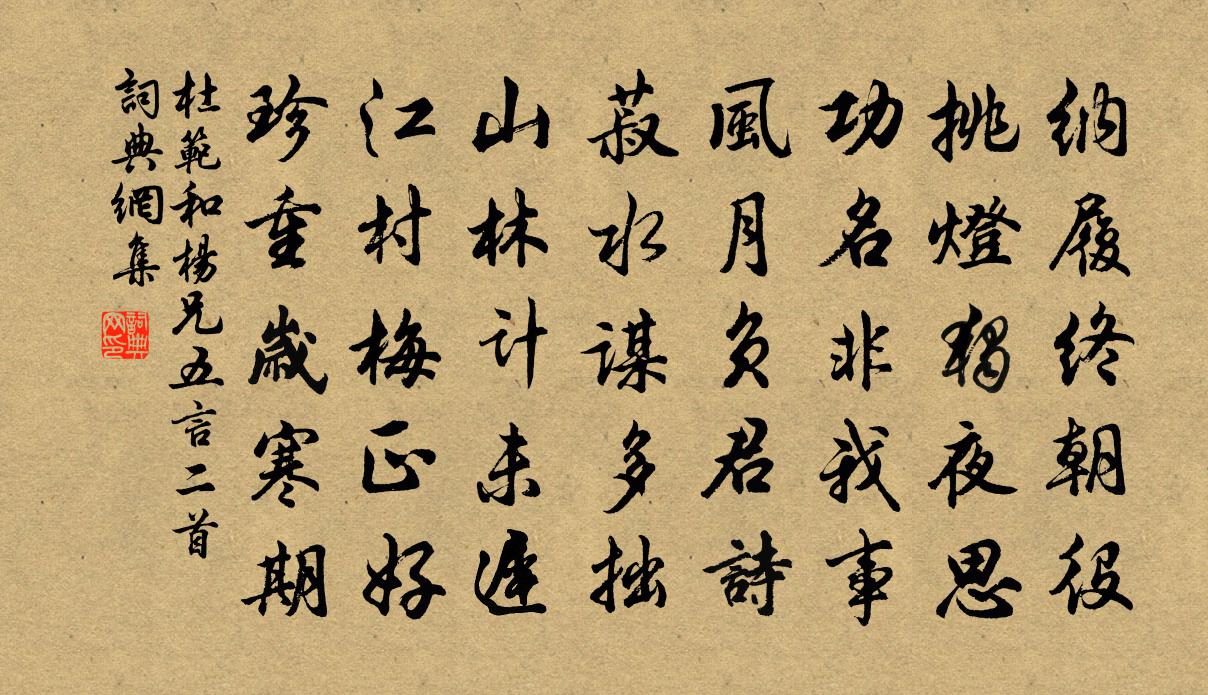 納履終朝役
挑燈獨夜思
功名非我事
風月負君詩
菽水謀多拙
山林計未遲
江村梅正好
珍重歲寒期
杜範和楊兄五言二首
詞典網集
詞典
网印